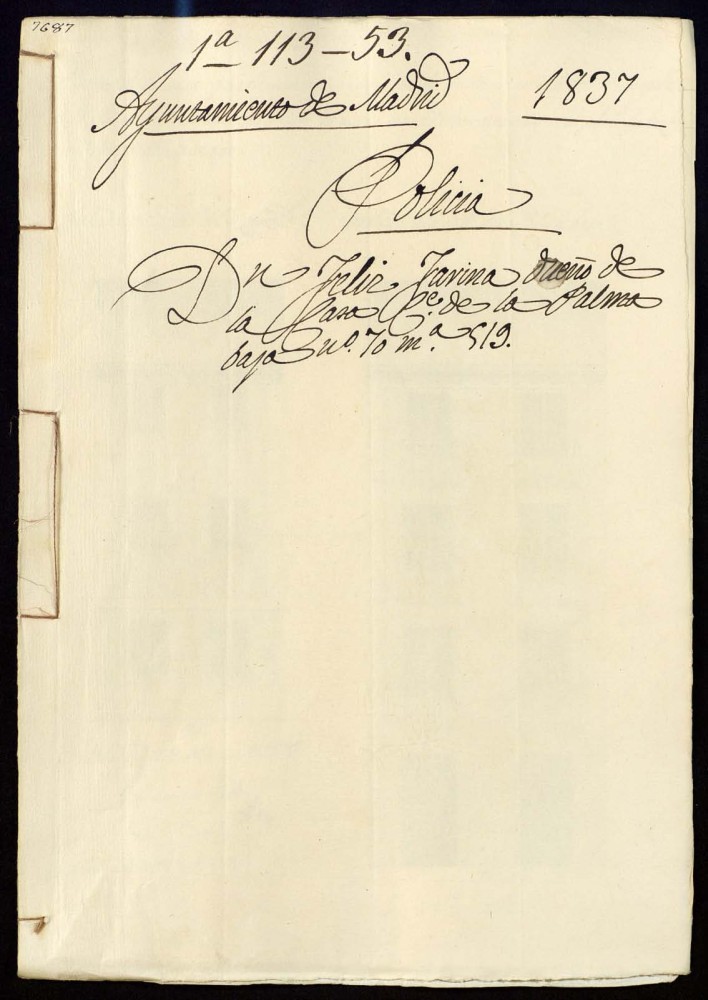 7687
1ª 113-53.
Ayuntamiento de Madrid
1837
Policia
Dn Feliz Farina dueño de
la Casa Ce. de la Palma
baja nº. 70 mª. 519.